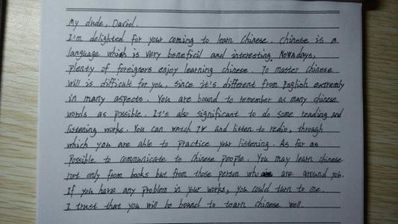 My dude, David.
I'm delighted for your coming to learn Chinese. Chinese is a
language which is very beneficil and interesting. Nowadays,
plenty of foreigners enjoy learning chinese. To master chinese
well is difficult for you, since it's different from English extremly
in many aspects. You are bound to remember as many chinese
words as possible. It's also significant to do some reading and
listening works. You can watch TV and listen to redio, through
which you are able to practice your listening. As far as
possible to communicate to Chinese people. You may learn chinese
not only from books but from those person who are around you.
If you have any problem in your works, you could turn to me.
I trust that you will be bound to learn chinese well.